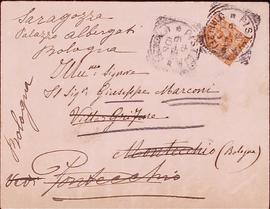 Saragozza
Palazzo Albergati
Bologna
Illu.ma Signora
Sigra Giuseppe Marconi
Villa Grifone
Montecchio (Bologna)
Pontecchio
Bologna